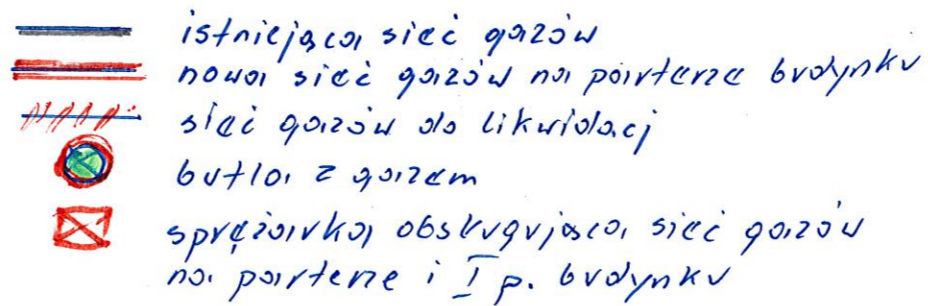 istniejąca sieć gazów
nowa sieć gazów na parterze budynku
sieć gazów do likwidacj
butla z gazem
sprężarka obsługująca sieć gazów
na parterze i I p. budynku